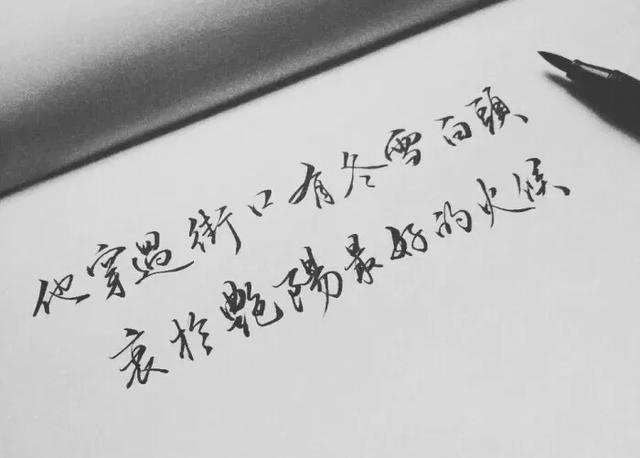 他穿過街口有冬雪白頭
哀於艷陽最好的火候